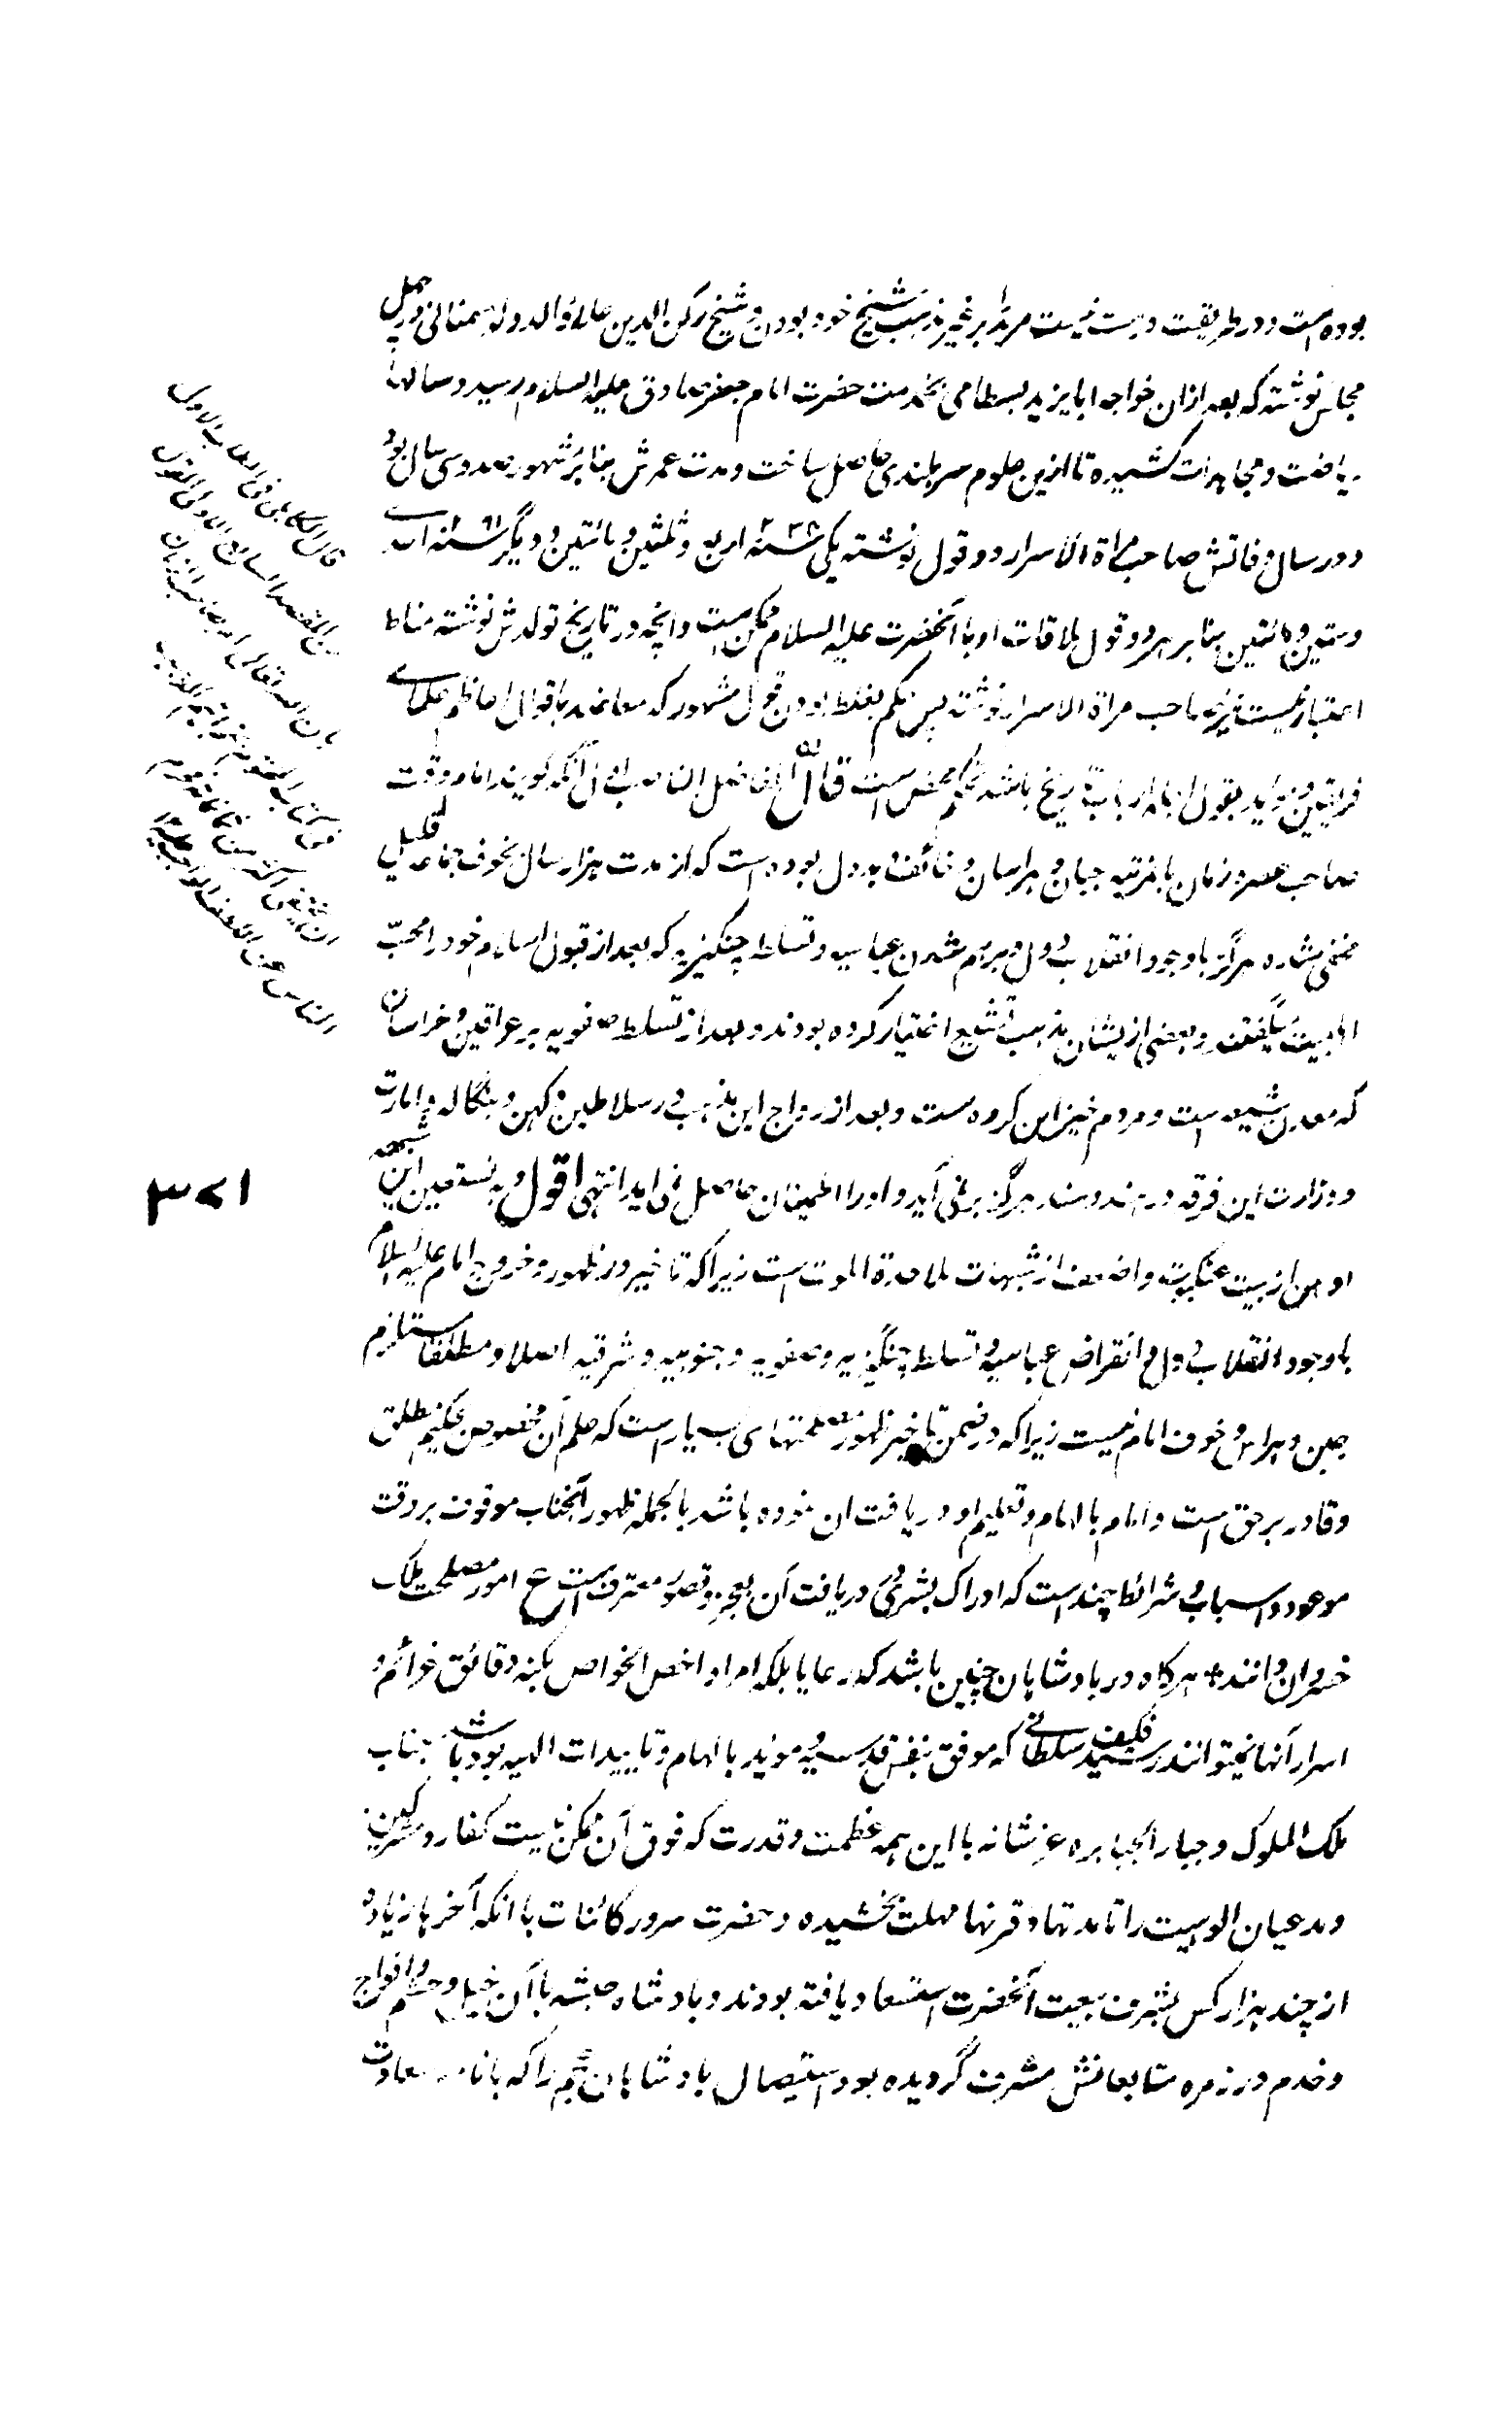 بوده است و در طریقت درست نیست مرید را بر غیر مذهب شیخ خود بودن و شیخ رکن الدین علاؤالدوله سمنانی در چهل
مجلس نوشته که بعد ازان خواجه ابا یزید بسطامی بخدمت حضرت امام جعفر صادق علیه السلام رسید و سالها
ریاضت و مجاهدات کشیده تا ازین علوم سر بلندی حاصل ساخت و مدت عمرش بنا بر مشهور صد و سی سال بود
و در سال وفاتش صاحب مراة الاسرار دو قول نوشته یکی سنه ۲۳۴ اربع و ثلثین و مائتین و دیگر سنه ۲۶۱ احدے
و ستین و مائتین بنا بر هر دو قول ملاقات او با آنحضرت علیه السلام ممکن نیست و انچه در تاریخ تولدش نوشته مناط
اعتبار نیست زیرا صاحب مراة الاسرار نوشته پس حکم بغلط بودن قول مشهور که معاضد باقوال اعاظم علماے
فریقین و مؤید بقول ارباب تاریخ باشد تحکم محض است قال الفاضل الناصب ازانکه گویند امام وقت
صاحب عصر و زمان باینمرتبه جبان و هراسان و خائف و بد دل بوده است که از مدت هزار سال بخوف جماعه قلیل
مختفی شده هرگز با وجود انقلاب دول و برهم شدن عباسیه و تسلط چنگیزیه که بعد از قبول اسلام خود را محب
اهلبیت میگفتند و بعضی ازیشان مذهب تشیع اختیار کرده بودند و بعد از تسلط صفویه بر عراقین و خراسان
که معدن شیعه است و مردم خیز این گروه ست و بعد از رواج این مذهب در سلاطین دکهن و بنگاله و امارت
و وزارت این فرقه در هند و سند هرگز بر نمی آید و او را اطمینان حاصل نمی آید انتهی اقول و به نستعین این شبهه
اوهن از بیت عنکبوت و اضعف از شبهات ملاحدة الموت است زیرا که تاخیر در ظهور و خروج امام علیه السلام
با وجود انقلاب دول و انقراض عباسیه و تسلط چنگیزیه و صفویه و جنوبیه و شرقیه اصلا و مطلقا مستلزم
جبن و هراس و خوف امام نیست زیرا که در ضمن تاخیر ظهور مصلحتهای بسیار است که علم آن مخصوص بحکیم مطلق
و قادر برحق است و امام بالهام و تعلیم او دریافت ان نموده باشد بالجمله ظهور آنجناب موقوف بر وقت
موعود و اسباب و شرائط چند است که ادراک بشری در دریافت آن بعجز و قصور معترف است ع امور مصلحت ملک
خسروان دانند + هرگاه در بادشاهان چنین باشد که رعایا بلکه امرا و اخص الخواص بکنه دقائق عزائم و
اسرار آنها نمیتوانند رسید فکیف سلطانے که موفق بنفس قدسیه و موید بالهام و تاییدات الهیه بوده باشد جناب
ملک الملوک و جبار الجبابره عز شانه با این همه عظمت و قدرت که فوق آن ممکن نیست کفار و مشرکین
و مدعیان الوهیت را تا مدتها و قرنها مهلت بخشیده و حضرت سرور کائنات با انکه آخرها زیاده
از چند هزار کس بشرف بیعت آنحضرت استسعاد یافته بودند و بادشاه حبشه با آن خیل و حشم و افواج
و خدم در زمره متابعانش مشرف گردیده بود استیصال بادشاهان عجم را که بانا
۳۷۱
قال الکابلی فی المطلب الاول
من المقصد